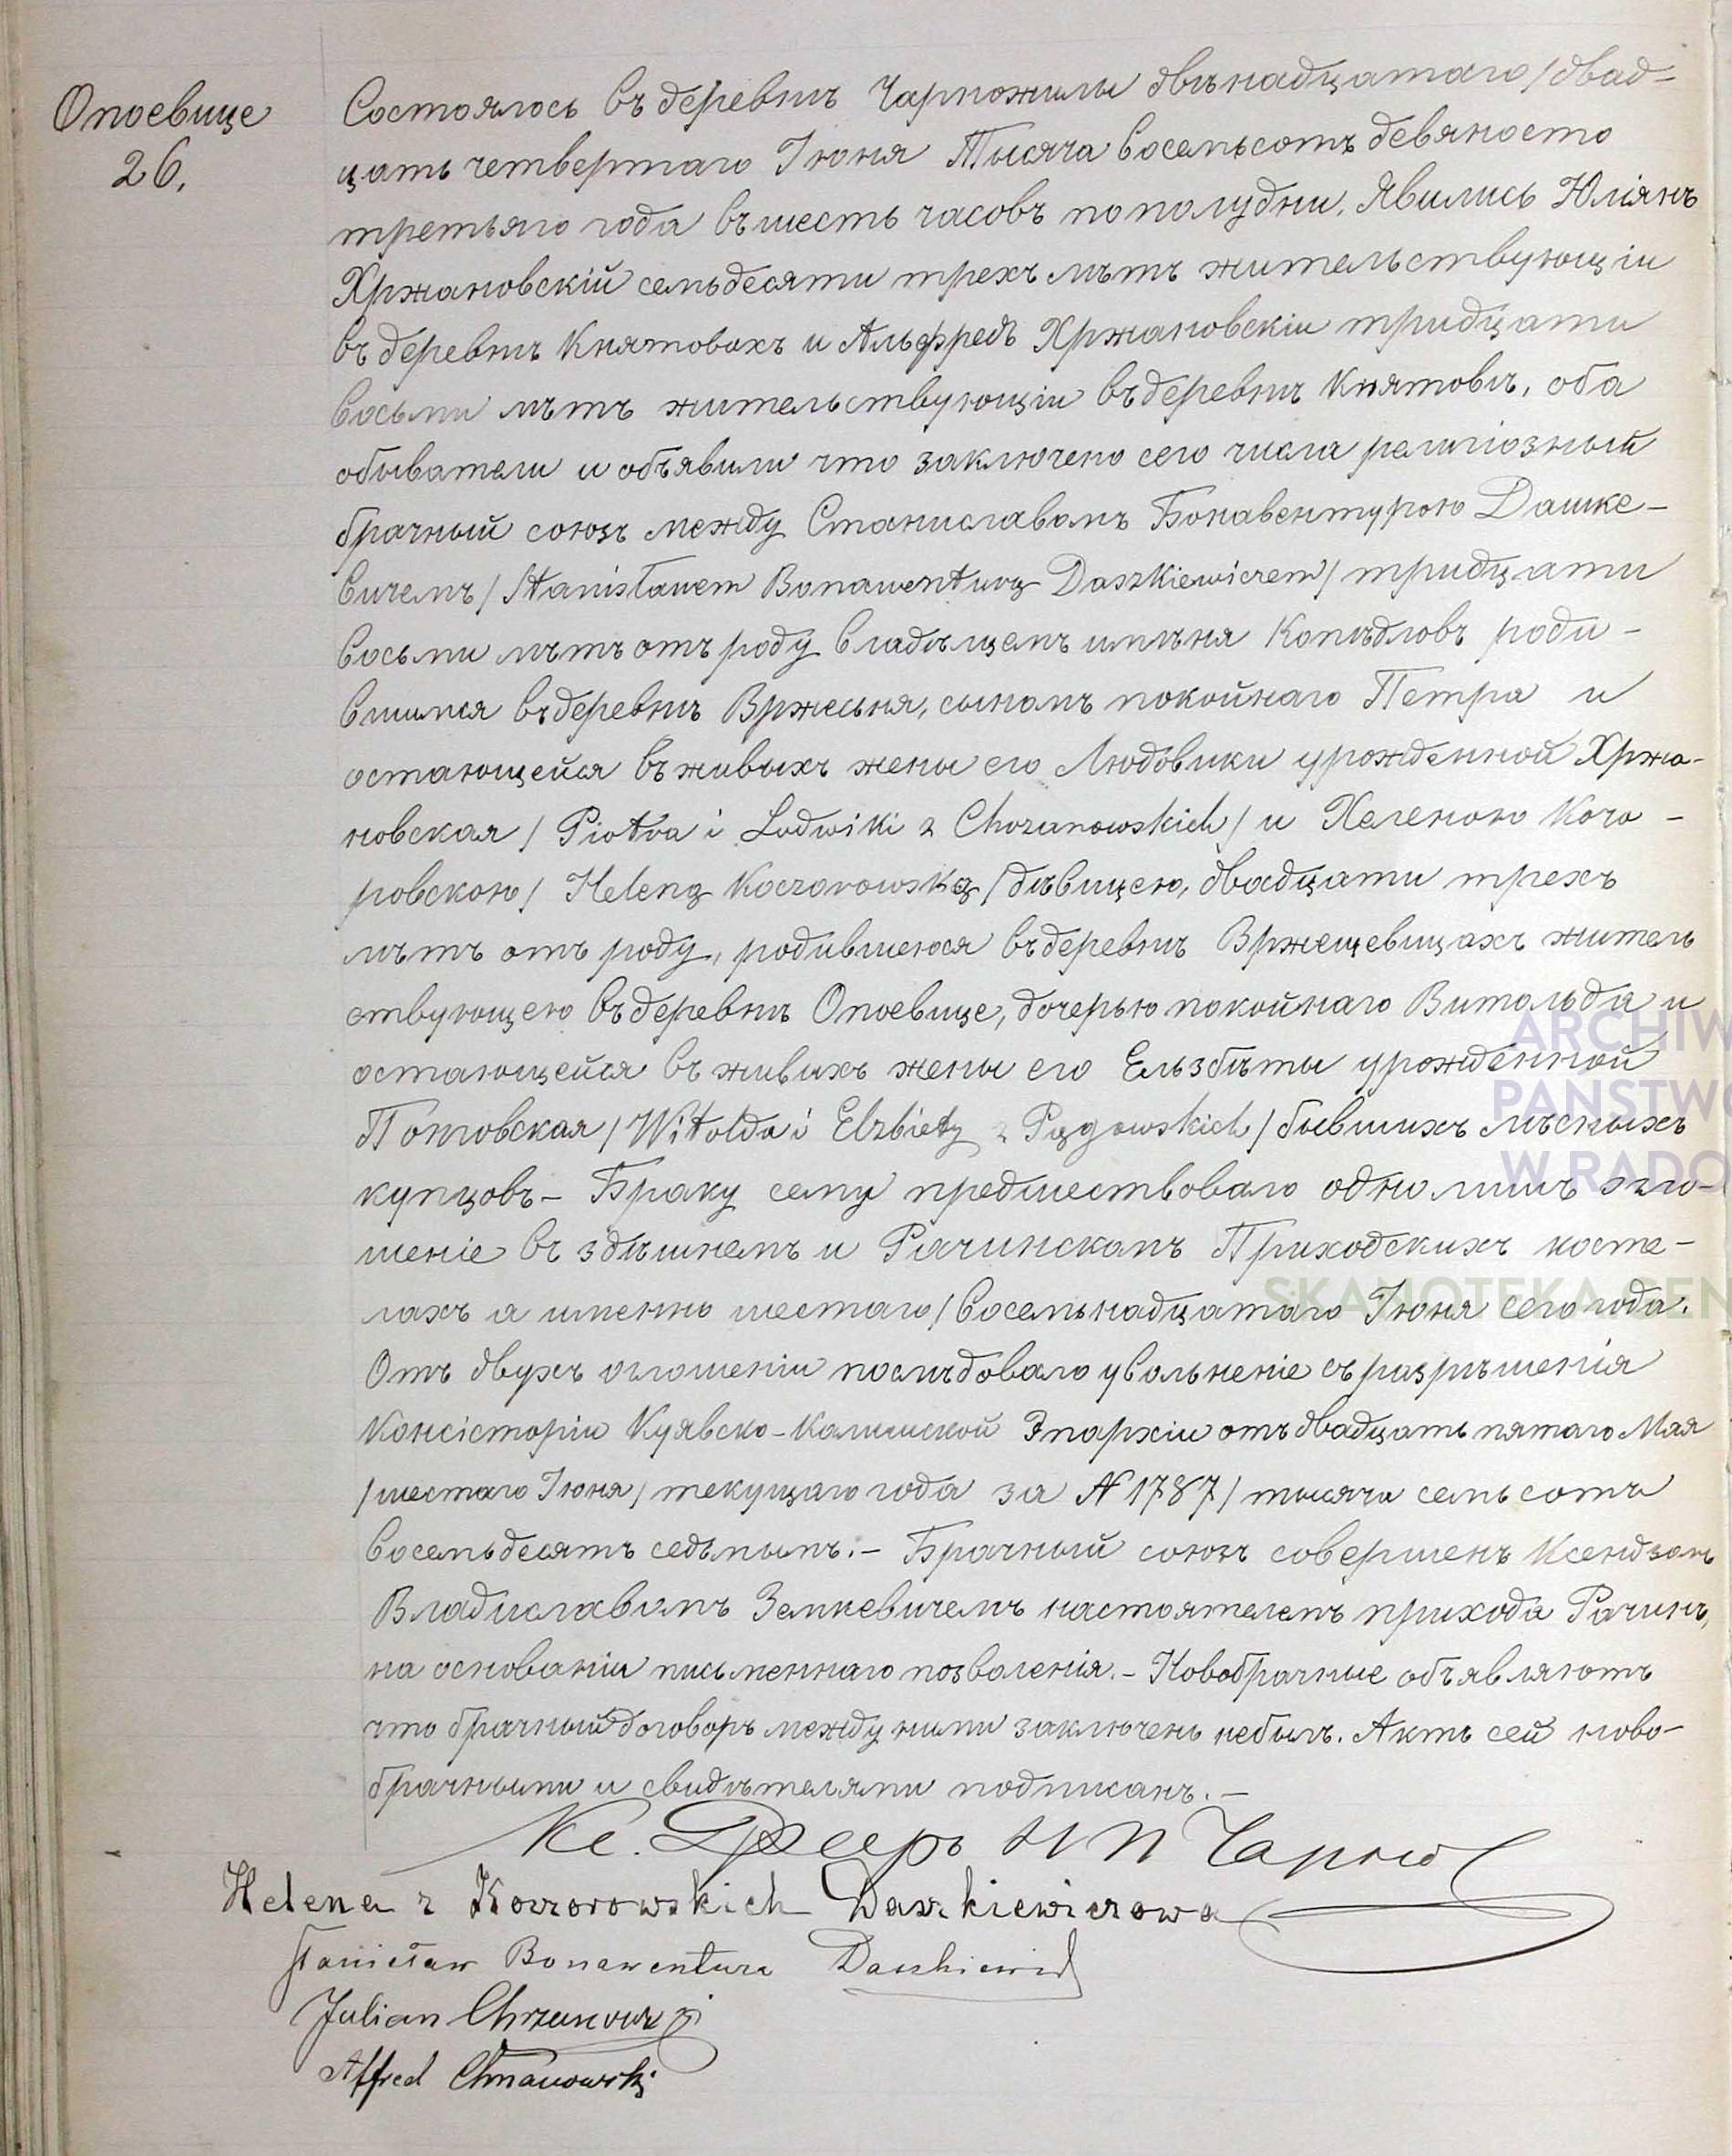 Опоевице
26.
Состоялось въ деревнѣ Чарножилы двѣнадцатаго / двад-
цать четвертаго Іюня Тысяча восемьсотъ девяносто
третьяго года въ шесть часовъ пополудни. Явились Юліянъ
Хржановскій семьдесяти трехъ лѣтъ жительствующіи
въ деревнѣ Княтовахъ и Альфредъ Хржановскіи тридцати
восьми лѣтъ жительствующіи въ деревнѣ Княтовѣ, оба
обыватели и объявили что заключено сего числа религіозный
брачный союзъ между Станиславомъ Бонавентурою Дашке-
вичемъ / Stanisławem Bonawenturą Daszkiewiczem / тридцати
восьми лѣтъ отъ роду владѣльцемъ имѣня Копыдловъ роди-
вшимся въ деревнѣ Вржесьня, сыномъ покойнаго Петра и
остающейся въ живыхъ жены его Людовики урожденной Хржа-
новская / Piotra i Ludwiki z Chrzanowskich / и Хеленою Кочо-
ровскою / Heleną Koczorowską / дѣвицею, двадцати трехъ
лѣтъ отъ роду, родившеюся въ деревнѣ Вржещевицахъ житель
ствующею въ деревнѣ Опоевице, дочерью покойнаго Витольда и
остающейся въ живыхъ жены его Ельзбѣты урожденной
/ Witolda i Elżbiety z / бывшихъ
купцовъ – Браку сему предшествовало одно лишь огло-
шеніе въ здѣшнемъ и Рачинскомъ Приходскихъ косте-
лахъ а именно шестаго / восемьнадцатаго Іюня сего года.
Отъ двухъ оглошеніи послѣдовало увольненіе съ разрѣшенія
Консісторіи Куявско-Калишской Эпархіи отъ двадцать пятаго Мая
/ шестаго Іюня / текущаго года за N 1787 / тысяча семьсотъ
восемьдесятъ седьмымъ. – Брачный союзъ совершенъ Ксендзомъ
ВладиславомъЗемкевичемъ настоятелемъ прихода Рачинъ,
на основаніи письменнаго позволенія. – Новобрачные объявляютъ
что брачный договоръ между ними заключенъ небылъ. Актъ сей ново-
брачными и свидѣтелями подписанъ. –
Кс. Н П Чарнож
Helena z Koczorowskich Daszkiewiczowa
Stanisław Bonawentura Daszkiewicz
Julian Chrzanowski
Alfred Chrzanowski
ARCHIW
PAŃSTWO
W RADO
SKANOTEKA GEN